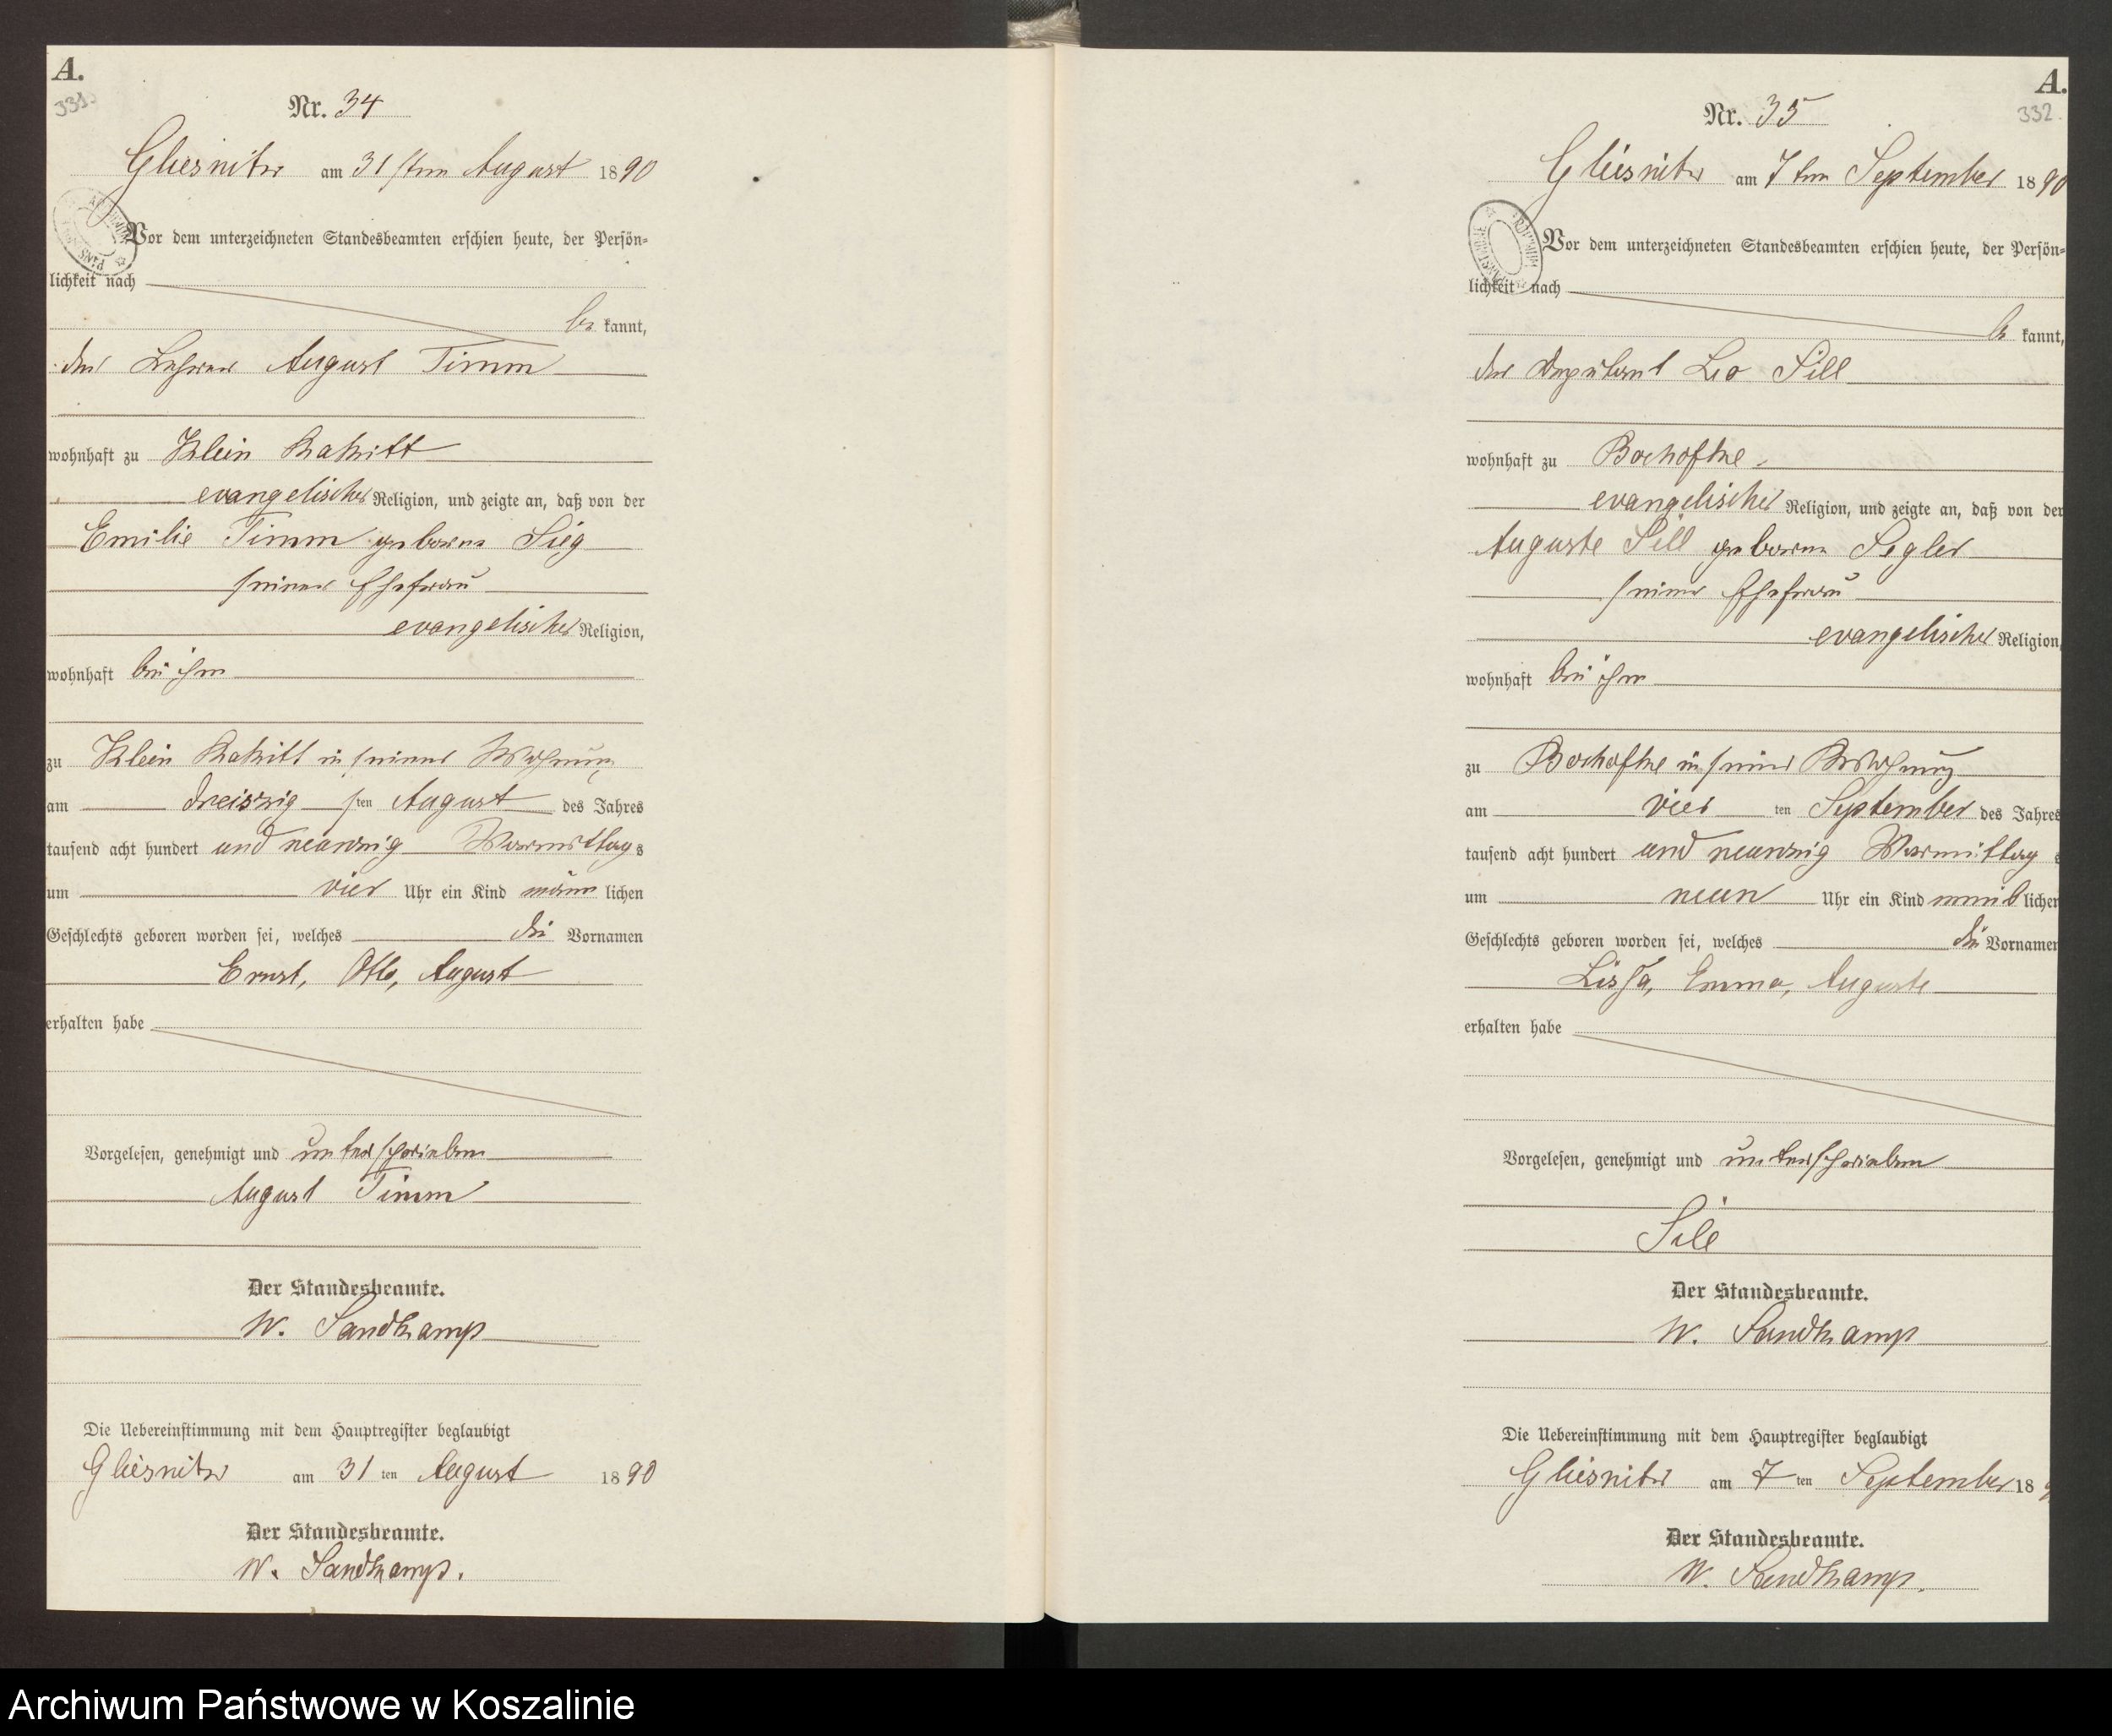 A.
331.
Nr. 34
Gliesnitz am 31sten August 1890
Vor dem unterzeichneten Standesbeamten erschien heute, der Persön=
lichkeit nach
be kannt,
der Lehrer August Timm
wohnhaft zu Klein Rakitt
evangelischer Religion, und zeigte an, daß von der
Emilie Timm geborne Sieg
seiner Ehefrau
evangelischer Religion,
wohnhaft bei ihm
zu Klein Rakitt in seiner Wohnung
am dreiszig sten August des Jahres
tausend acht hundert und neunzig Vormittags
um vier Uhr ein Kind männ lichen
Geschlechts geboren worden sei, welches die Vornamen
Ernst, Otto, August
erhalten habe
Vorgelesen, genehmigt und unterschrieben
August Timm
Der Standesbeamte.
W. Sandkamp
Die Uebereinstimmung mit dem Hauptregister beglaubigt
Gliesnitz am 31 ten August 1890
Der Standesbeamte.
W. Sandkamp.
A.
332.
Nr. 35
Gliesnitz am 7ten September 1890
Vor dem unterzeichneten Standesbeamten erschien heute, der Persön=
lichkeit nach
be kannt,
der Deputant Leo Sill
wohnhaft zu Bochofke
evangelischer Religion, und zeigte an, daß von der
Auguste Sill geborne Segler
seiner Ehefrau
evangelischer Religion,
wohnhaft bei ihm
zu Bochofke in seiner Wohnung
am vier ten September des Jahres
tausend acht hundert und neunzig Vormittag s
um neun Uhr ein Kind weib lichen
Geschlechts geboren worden sei, welches die Vornamen
Emma, Auguste
erhalten habe
Vorgelesen, genehmigt und unterschrieben
Sill
Der Standesbeamte.
W. Sandkamp
Die Uebereinstimmung mit dem Hauptregister beglaubigt
Gliesnitz am 7 ten September 189
Der Standesbeamte.
W. Sandkamp.
Archiwum Państwowe w Koszalinie